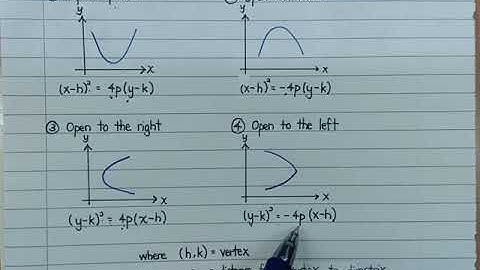 y
x
(x-h)² = 4p(y-k)
y
x
(x-h)² = -4p(y-k)
③ Open to the right
y
x
(y-k)² = 4p(x-h)
④ Open to the left
y
x
(y-k)² = -4p(x-h)
where (h,k) = vertex